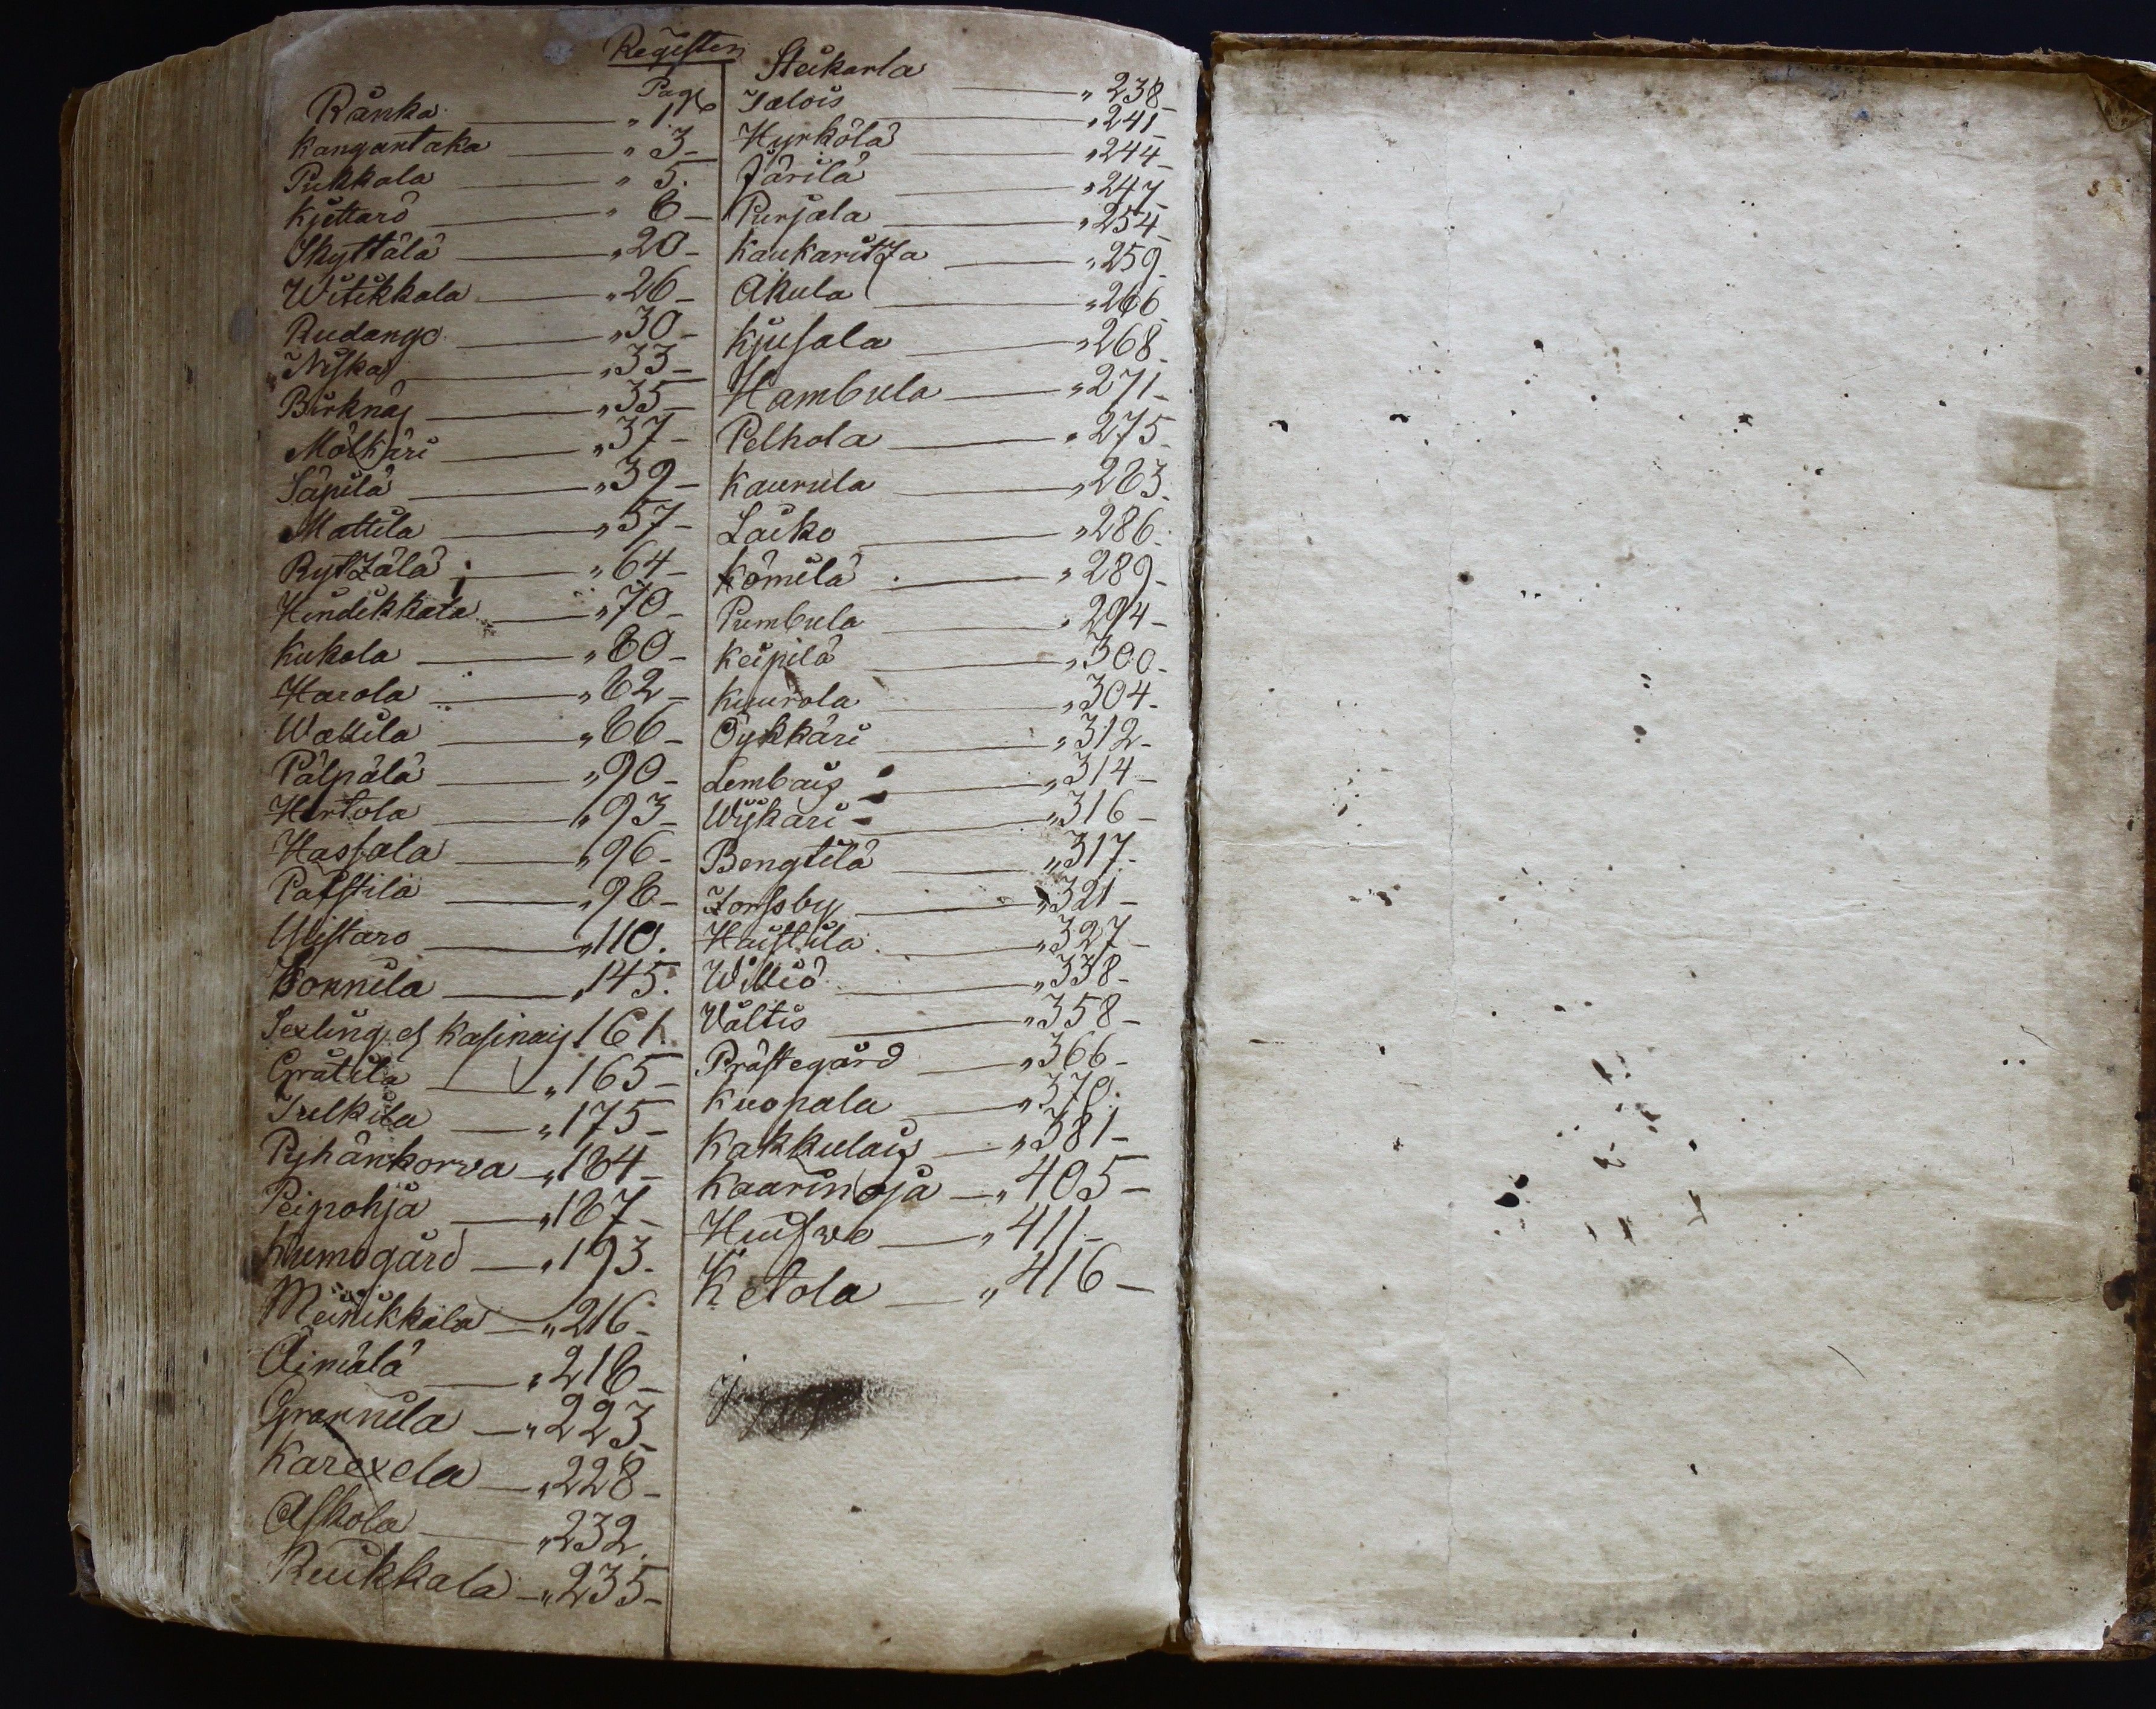 Register
Page
Ränka " 1
Kangantaka " 3
Pukkala " 5.
Kjettarö " 8
Skyttälä " 20
Witikkala " 26
Rudango " 30
Niska " 33
Birknäs " 35
Mölkäri " 37
Säpilä " 39
Mattila " 57
RytZälä " 64
Hindikkala " 70
Kukola " 80
Harola " 82
Wattila " 86
Pälpälä " 90
Hertola " 93
Hassala " 96
Paistila " 98
Ylistaro " 110.
Tonnila " 145.
Sexling och Kasinais 161.
Grätila " 165
Tulkila " 175
Pyhänkorva " 184
Peipohja " 187
Kumogård " 193.
Meinikkala " 216
Äimälä " 218
Grannila " 223
Karexela " 228
Askola " 232.
Ruikkala " 235
Steikarla " 238
Talois " 241
Hyrkölä " 244
Järilä " 247
Purjala " 254
KaukaritZa " 259
Akula " 266
Kjusala " 268
Hambula " 271
Pelhola " 275
Kaurula " 283
Laiko " 286
Kömilä " 289
Pumbula " 294
Keipilä " 300
Kuurola " 304
Öykkäri " 312
Lembais " 314
Wykäri " 316
Bengtilä " 317
Forssby " 321
Haistila " 327
Williö " 338
Valtis " 358
Prästegård " 366
Kuopala " 370.
Kakkulais " 381
Kaarinoja " 405
Huifvo " 411
Ketola " 416